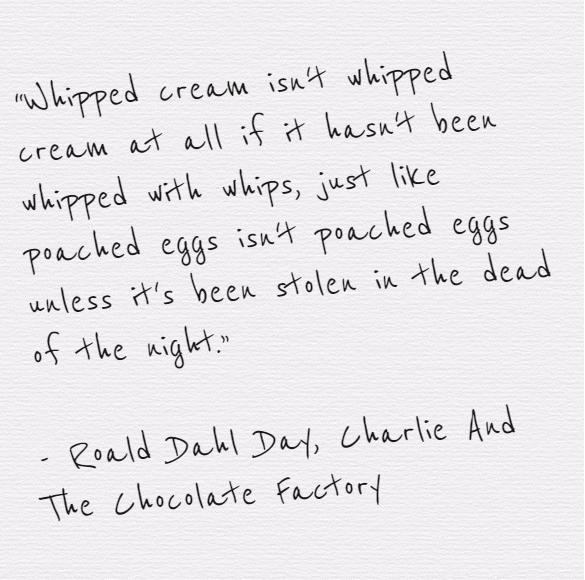 “Whipped cream isn't whipped
cream at all if it hasn't been
whipped with whips, just like
poached eggs isn't poached eggs
unless it's been stolen in the dead
of the night.”
- Roald Dahl Day, Charlie And
The Chocolate Factory